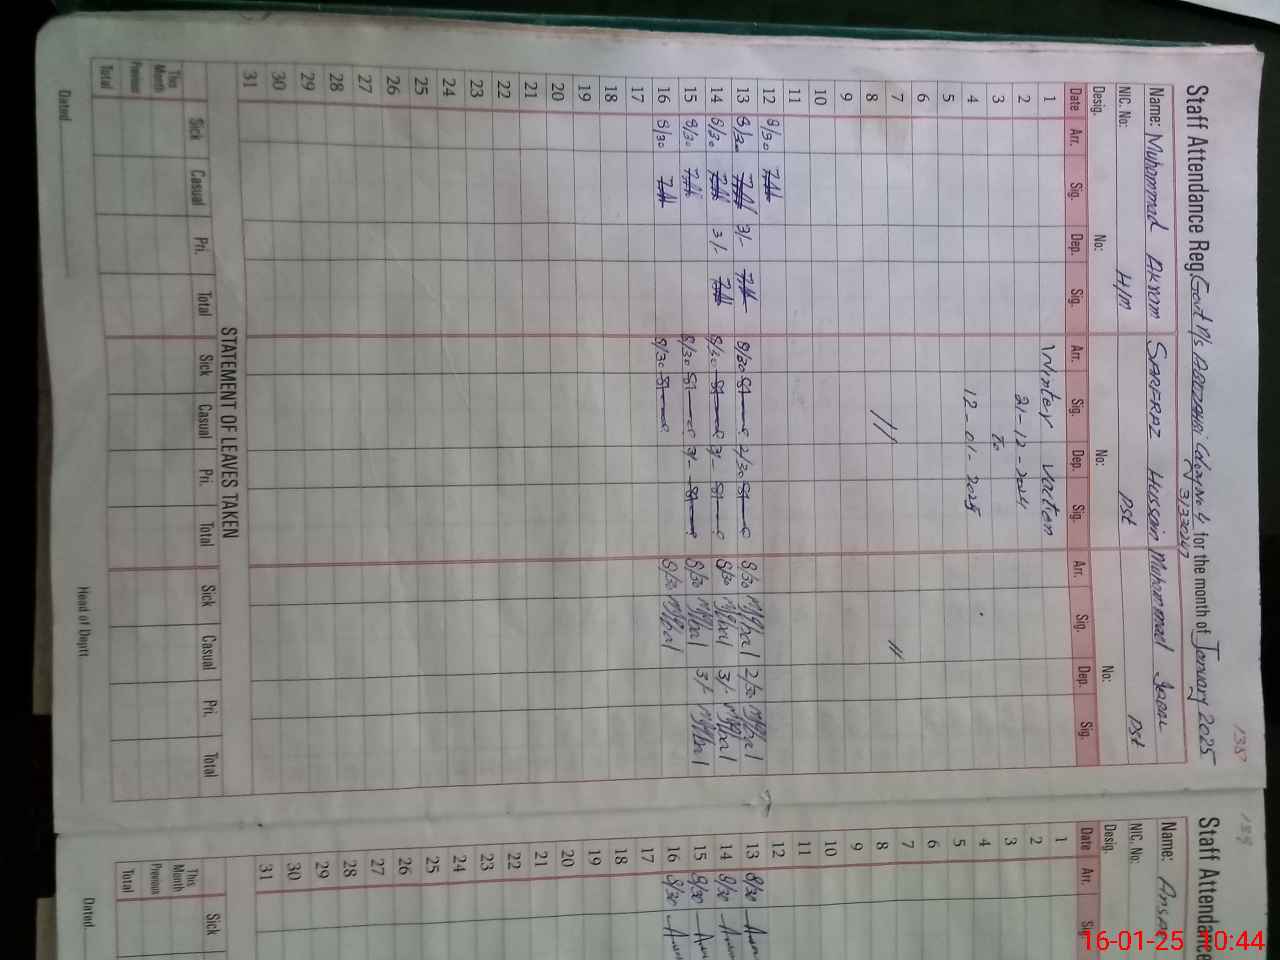 138
Staff Attendance Reg. Govt P/s Colony No 4 for the month of January 2025
31330247
Name: Muhammad Akram SARFRAZ Hussain Muhammad Iqbal
NIC. No: H/M PSt PSt
Desig. No: No: No:
Date Arr. Sig. Dep. Sig. Arr. Sig. Dep. Sig. Arr. Sig. Dep. Sig.
1 Winter Vaction
2 21-12-2024
3 To
4 12-01-2025
5
6
7 //
8 //
9
10
11
12 8/30
13 8/30 3/- 8/30 2/30 8/30 2/30
14 8/30 3/- 8/30 3/- 8/30 3/-
15 8/30 8/30 3/- 8/30 3/-
16 8/30 8/30 8/30
17
18
19
20
21
22
23
24
25
26
27
28
29
30
31
STATEMENT OF LEAVES TAKEN
Sick Casual Pri. Total Sick Casual Pri. Total Sick Casual Pri. Total
This Month
Previous
Total
Dated Head of Deptt
139
Staff Attendance
Name: Ansar
NIC. No:
Desig.
Date Arr. Sig.
1
2
3
4
5
6
7
8
9
10
11
12
13 8/30
14 8/30
15 8/30
16 8/30
17
18
19
20
21
22
23
24
25
26
27
28
29
30
31
Sick
This Month
Previous
Total
Dated
16-01-25 10:44